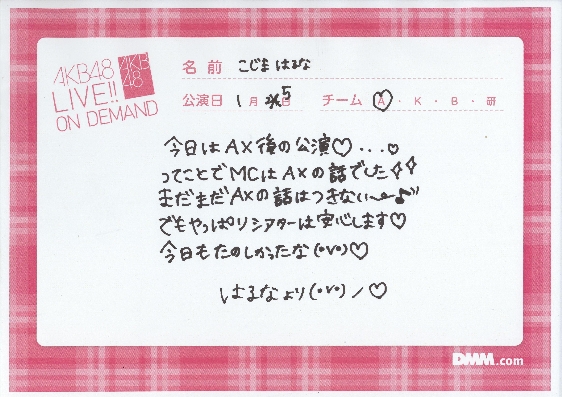 AKB48
LIVE!!
ON DEMAND
AKB
48
名前 こじま はるな
公演日 1月25日 チーム A・K・B・研
今日はAX後の公演♡...♡
ってことでMCはAXの話でした✧✧
まだまだAXの話はつきない〜♪
でもやっぱりシアターは安心します♡
今日もたのしかったな(•v•)♡
はるなより(•v•)ノ♡
DMM.com